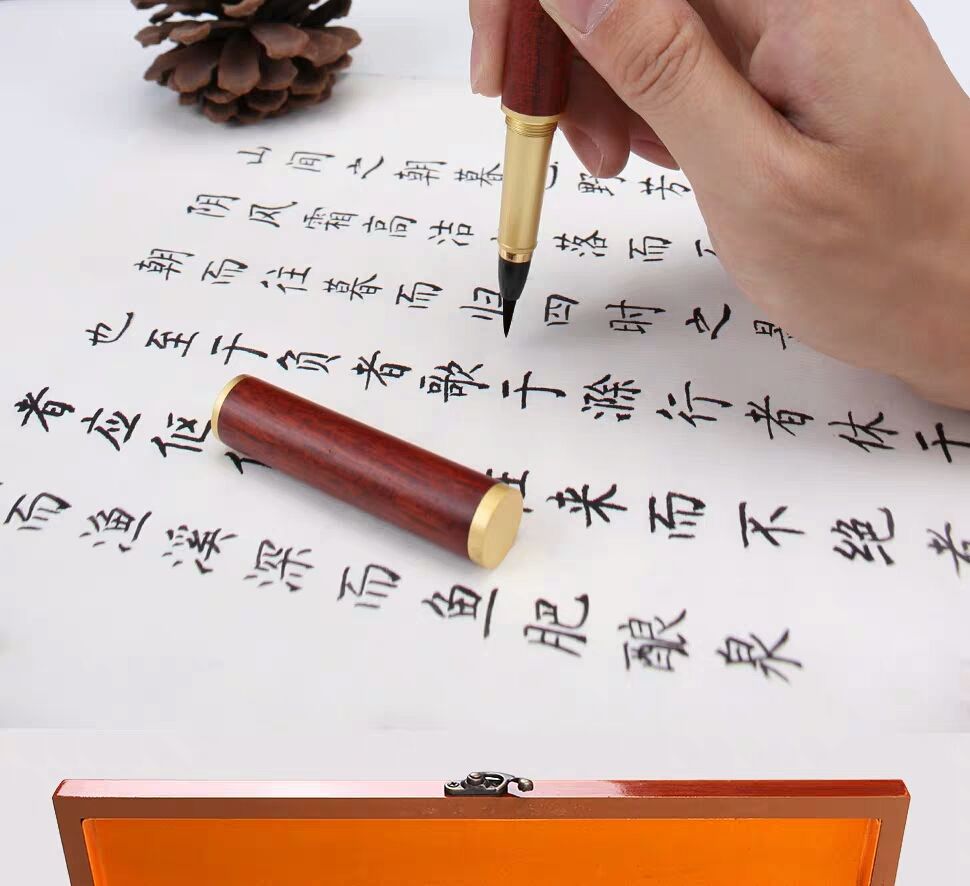 山间之朝暮 野芳
阴风霜高洁 落而
朝而往暮而归四时之景
也至于负者歌于滁行者休于
者应伛 往来而不绝者
而渔溪深而鱼肥酿泉